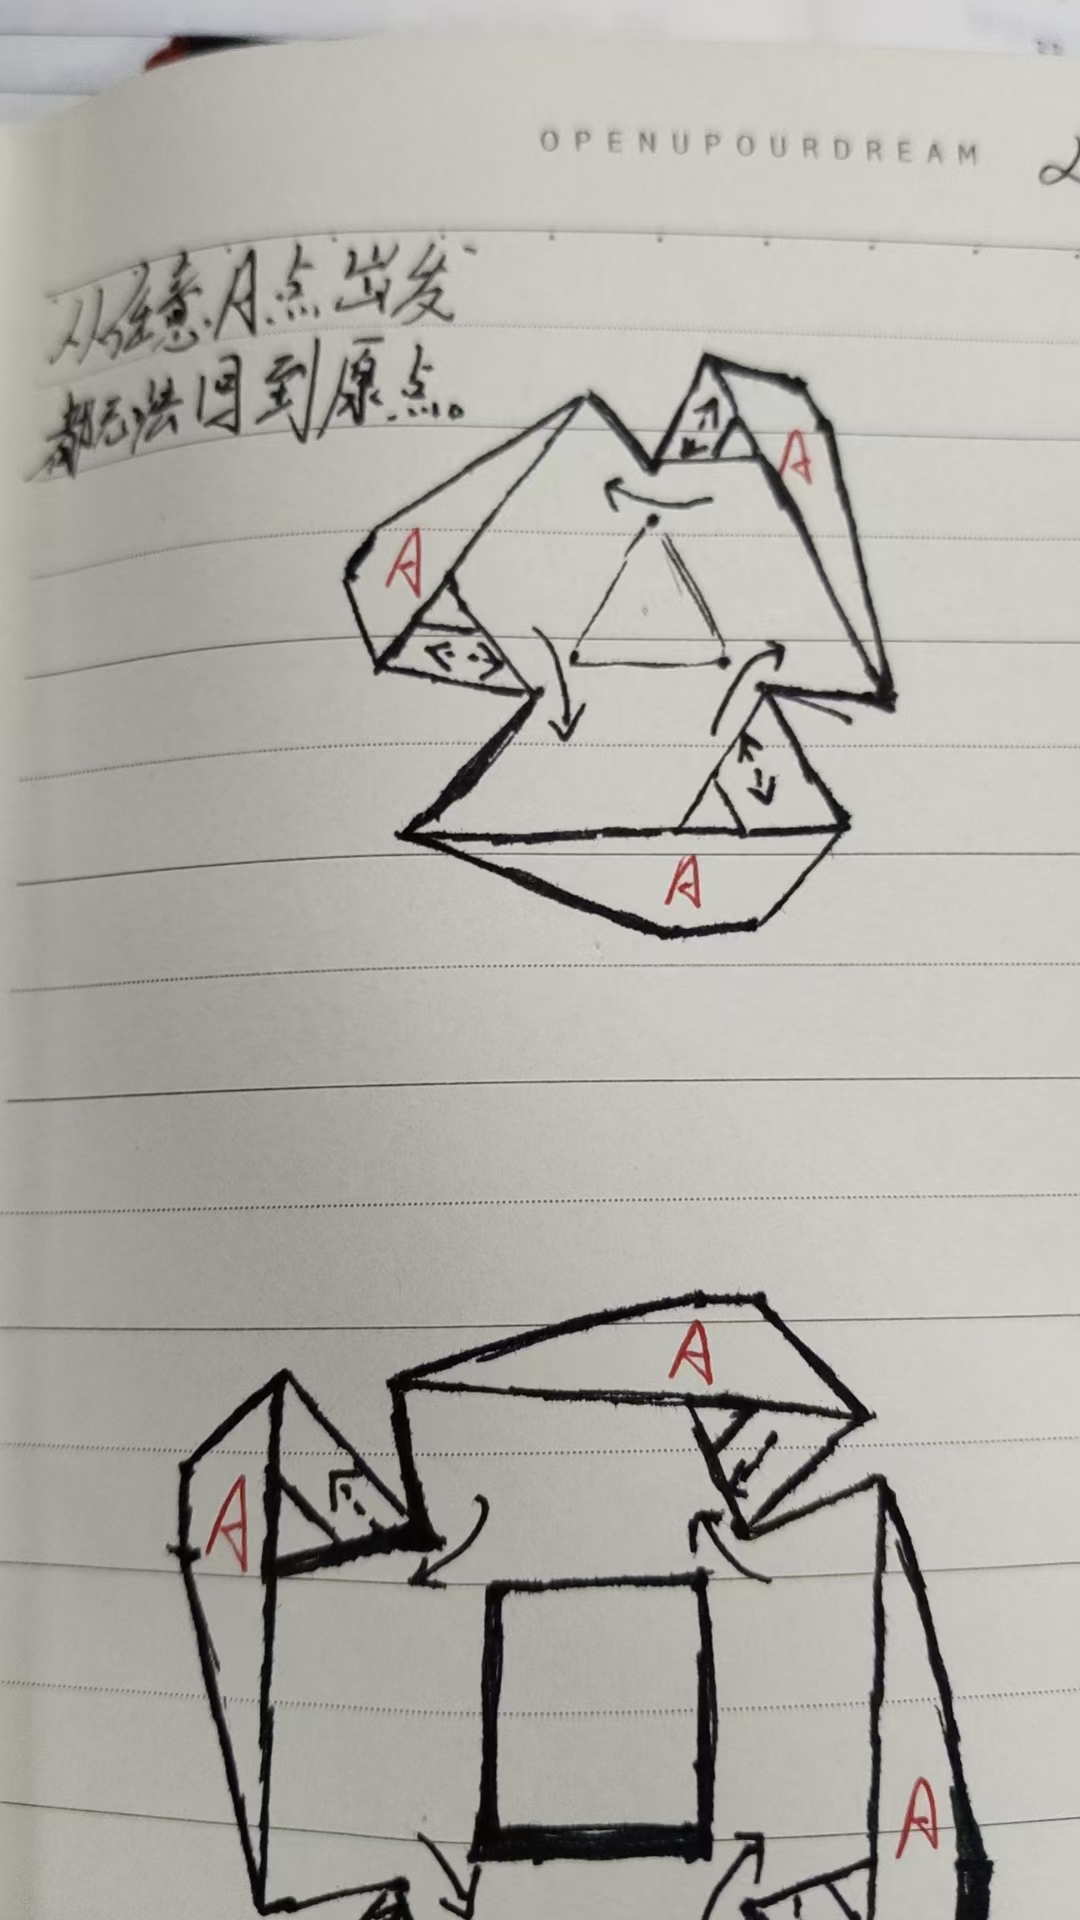 OPENUPOURDREAM
从任意A点出发
都无法回到原点。
A
A
A
A
A
A